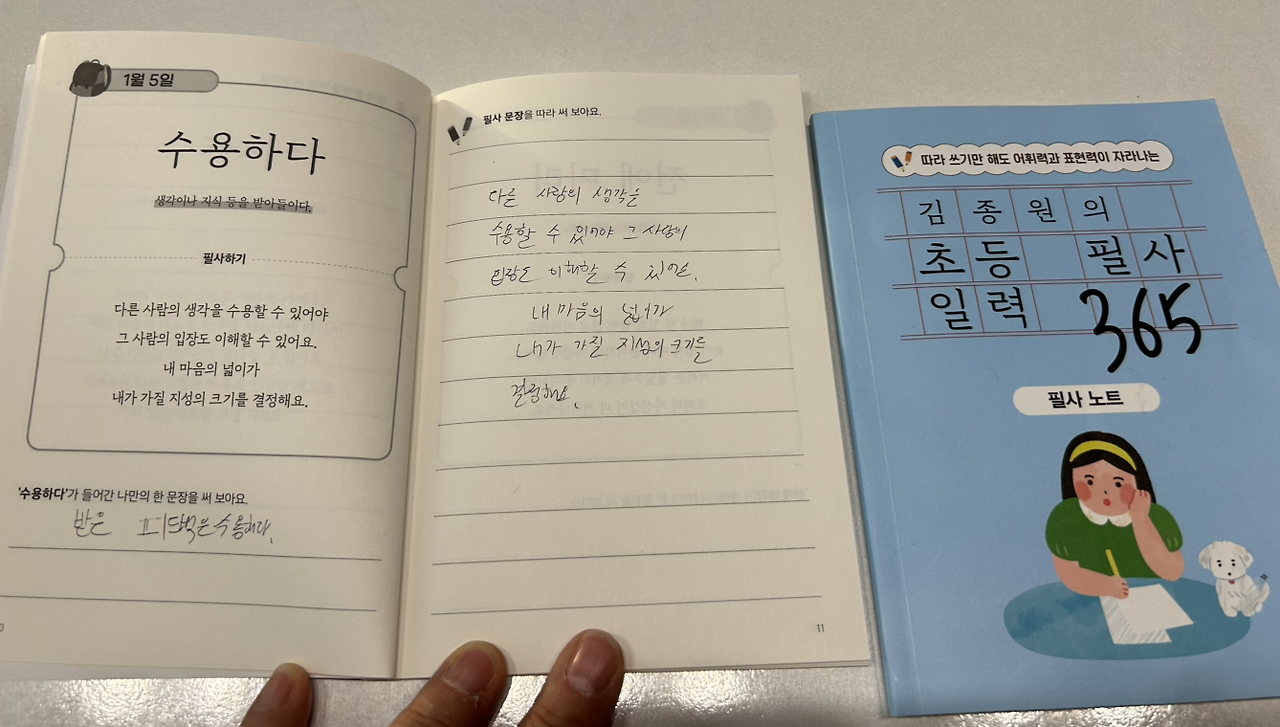 1월 5일
수용하다
생각이나 지식 등을 받아들이다.
필사하기
다른 사람의 생각을 수용할 수 있어야
그 사람의 입장도 이해할 수 있어요.
내 마음의 넓이가
내가 가질 지성의 크기를 결정해요.
'수용하다'가 들어간 나만의 한 문장을 써 보아요.
받은 피드백은 수용하다.
필사 문장을 따라 써 보아요.
다른 사람의 생각을
수용할 수 있어야 그 사람의
입장도 이해할 수 있어요.
내 마음의 넓이가
내가 가질 지성의 크기를
결정해요.
11
따라 쓰기만 해도 어휘력과 표현력이 자라나는
김종원의
초등 필사
일력 365
필사 노트